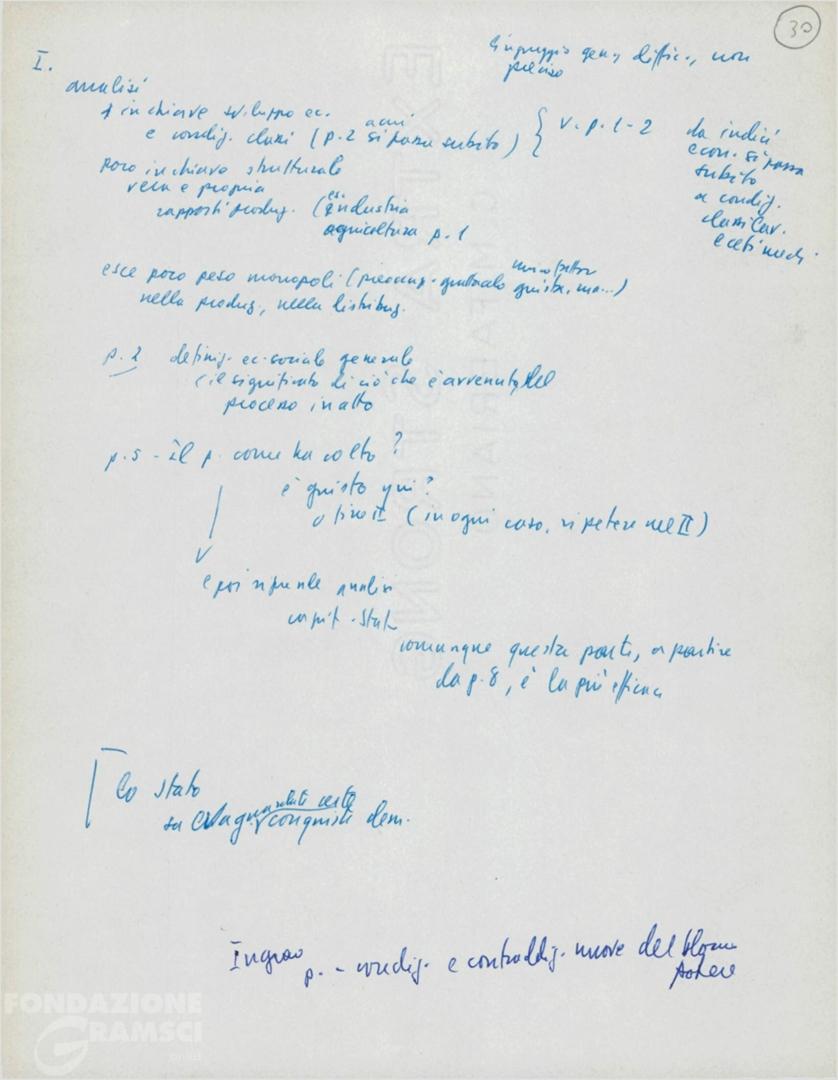 30
linguaggio gen. diffic., non
preciso
I.
analisi
in chiave sviluppo ec.
e condiz. classi (p. 2 si passa subito)
v. p. 1-2
da indici
econ. si passa
subito
a condiz.
classi lav.
e ceti medi
poco in chiave strutturale
vera e propria
rapporti produz. (es. industria
agricoltura p. 1
esce poco peso monopoli (preoccup. giusta, ma...)
nella produz., nella distribuz.
p. 2 definiz. ec. sociale generale
(il significato di ciò che è avvenuto, del
processo in atto
p. 5 - il p. come ha colto?
è giusto qui?
o fine II (in ogni caso, ripetere nel II)
e poi riprende analisi
capit. Stato
comunque questa parte, a partire
da p. 8, è la più efficace
Lo stato
su conquiste dem.
Ingrao
p. - condiz. e contraddiz. nuove del blocco
potere
FONDAZIONE
GRAMSCI
onlus